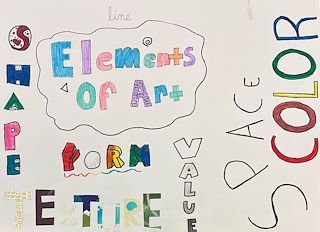 line
Elements
of Art
SHAPE
FORM
TEXTURE
VALUE
SPACE
COLOR